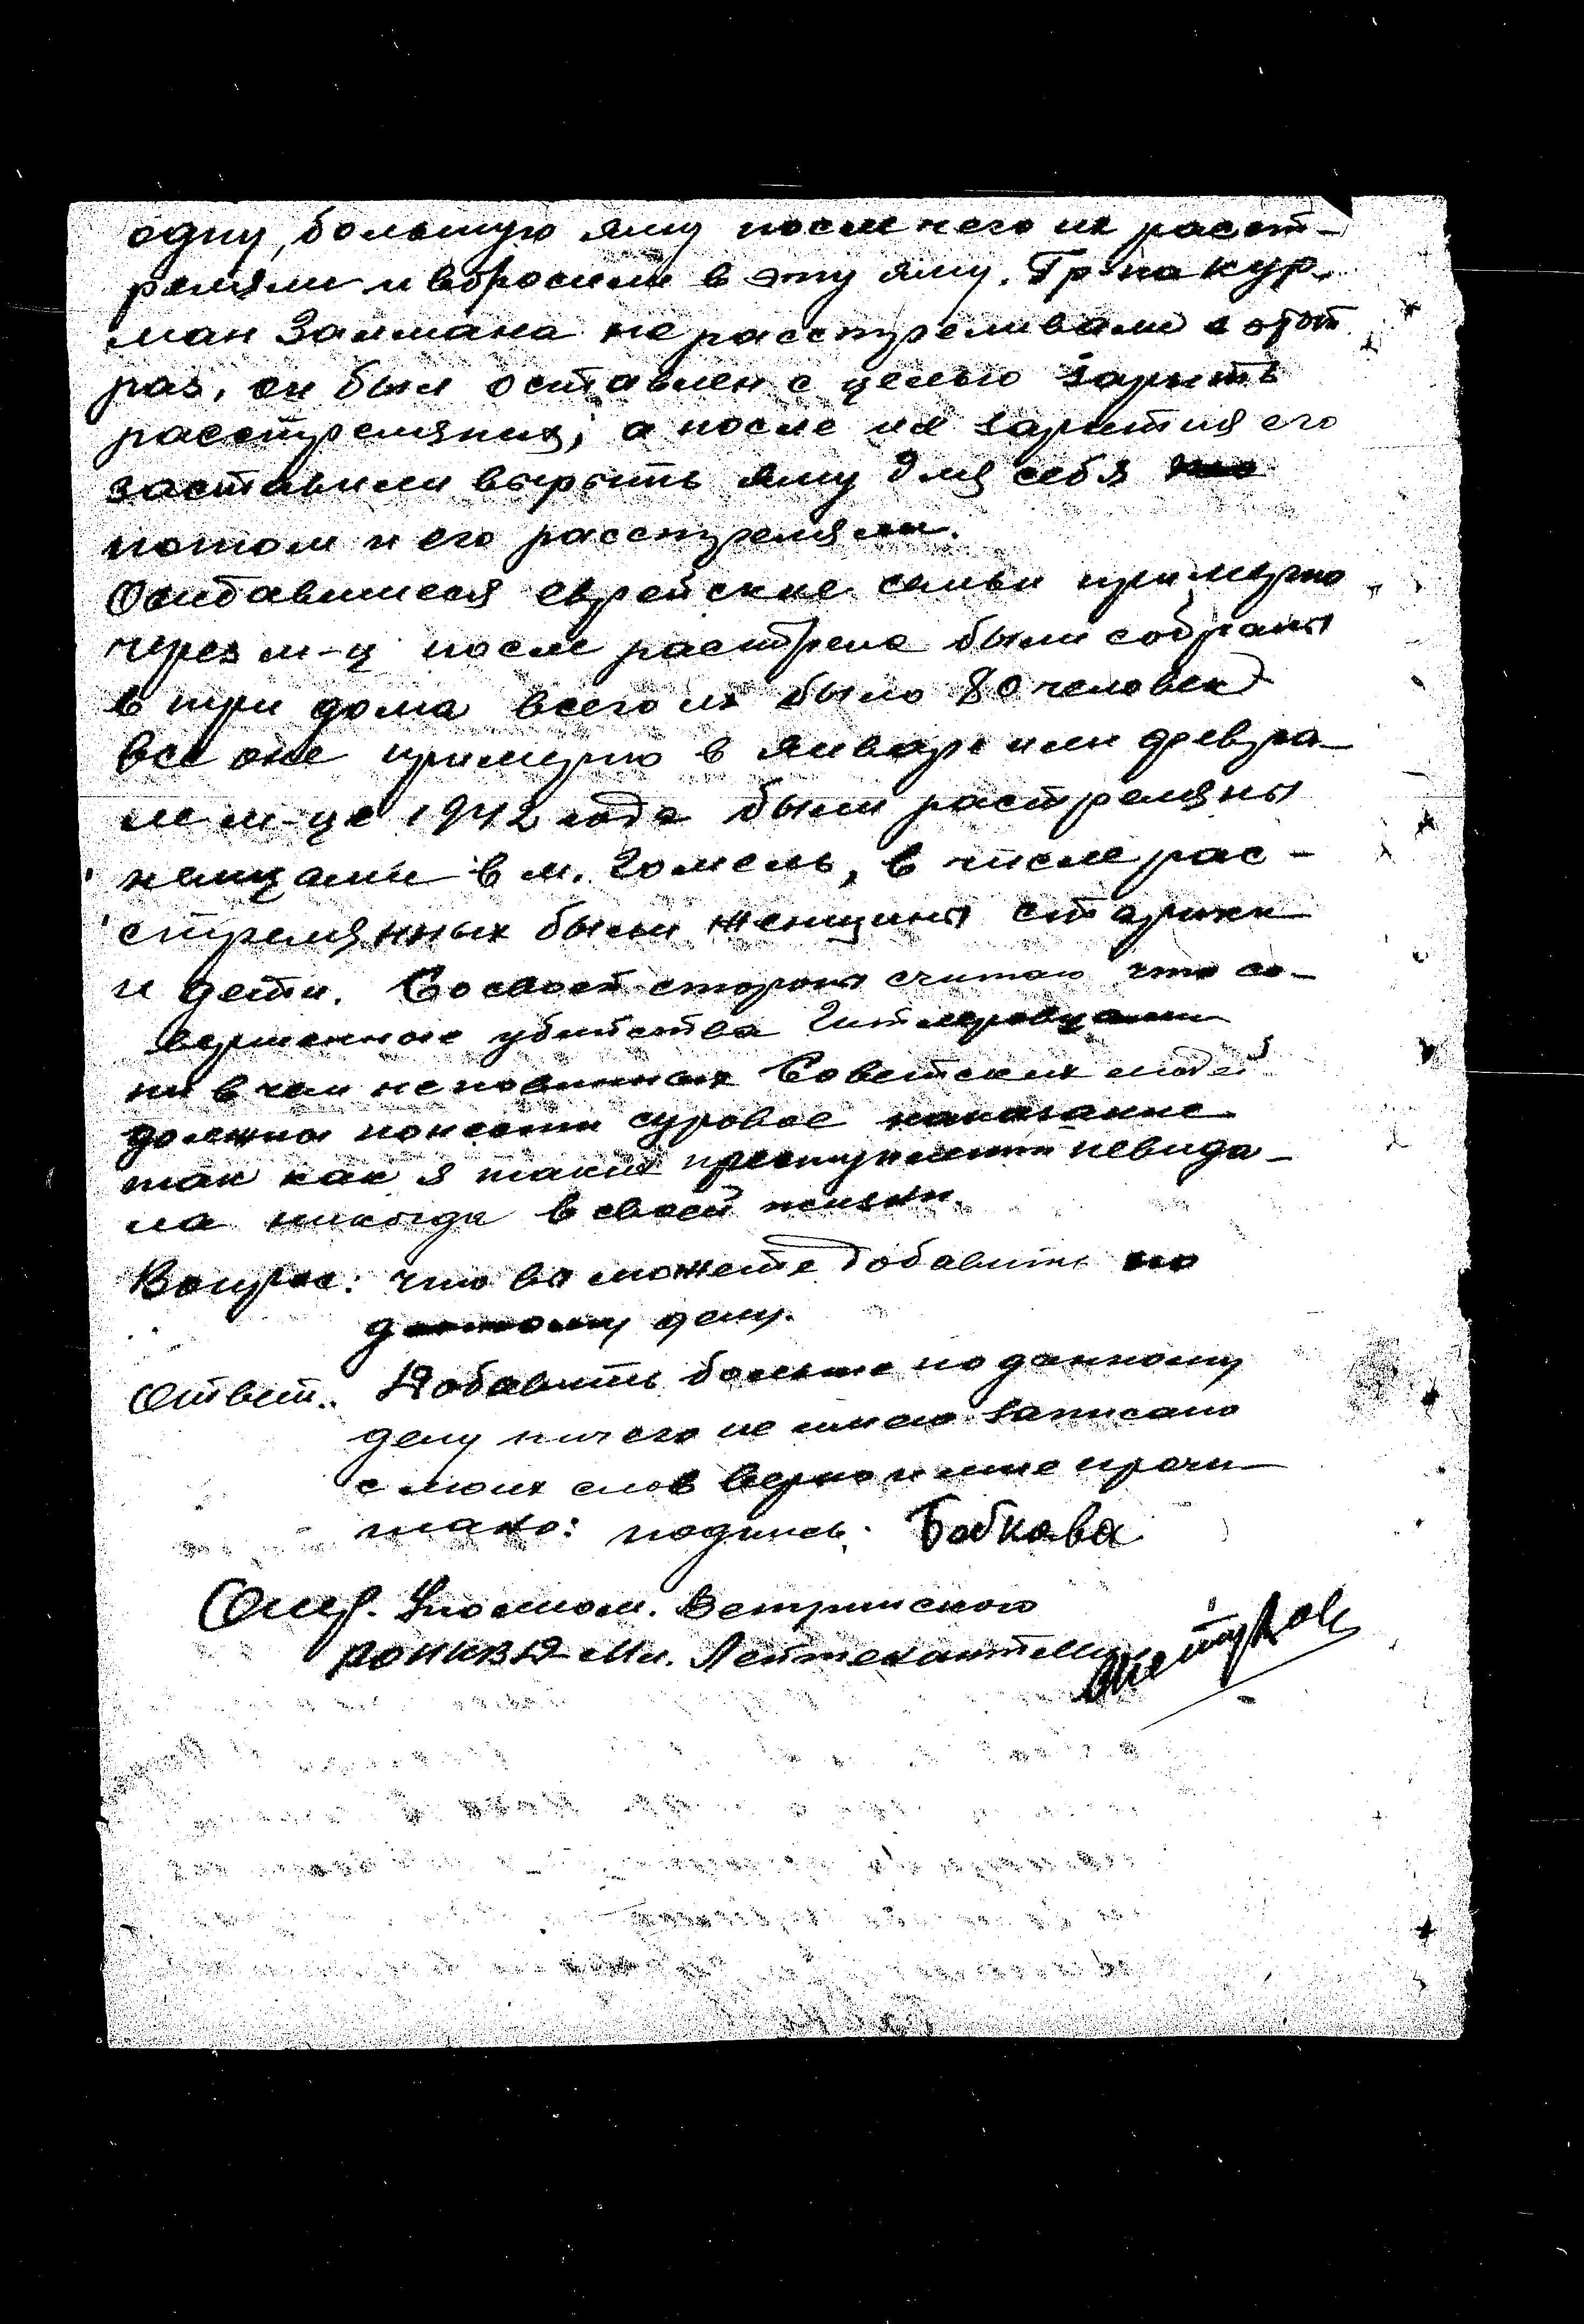 одну, большую яму после чего их расст-
реляли и вбросили в эту яму. Гр-на Кур-
ман Залмана не расстреливали в этот
раз, он был оставлен с целью зарыть
расстреляных, а после их зарытия его
заставили вырыть яму для себя
потом и его расстреляли.
Оставшиеся еврейские семьи примерно
через м-ц после растрела были собраны
в три дома всего их было 80 человек
все оне примерно в январе или февра-
ле м-це 1942 года были растреляны
немцами в м. Гомель, в числе рас-
стрелянных были женщины старики
и дети. Со своей стороны считаю что со-
вершенные убийства Гитлеровцами
ни в чем неповинных Советских людей
должны понести суровое наказание
так как я таких преступлений невида-
ла никогда в своей жизни.
Вопрос: что вы можете добавить по
данному делу.
Ответ: Добавить больше по данному
делу ничего не имею записано
с моих слов верно и мне прочи
тано: подпись. Бобкова
Опер. Уполном. Ветринского
РОНКВД Мл. Лейтенант